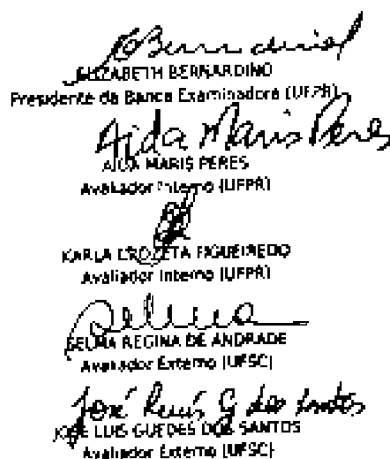 EBernardino
ELIZABETH BERNARDINO
Presidente da Banca Examinadora (UFPR)
Aida Maris Peres
AIDA MARIS PERES
Avaliador Interno (UFPR)
KARLA CROZETA FIGUEIREDO
Avaliador Interno (UFPR)
Selma
SELMA REGINA DE ANDRADE
Avaliador Externo (UFSC)
José Luís G dos Santos
JOSÉ LUIS GUEDES DOS SANTOS
Avaliador Externo (UFSC)